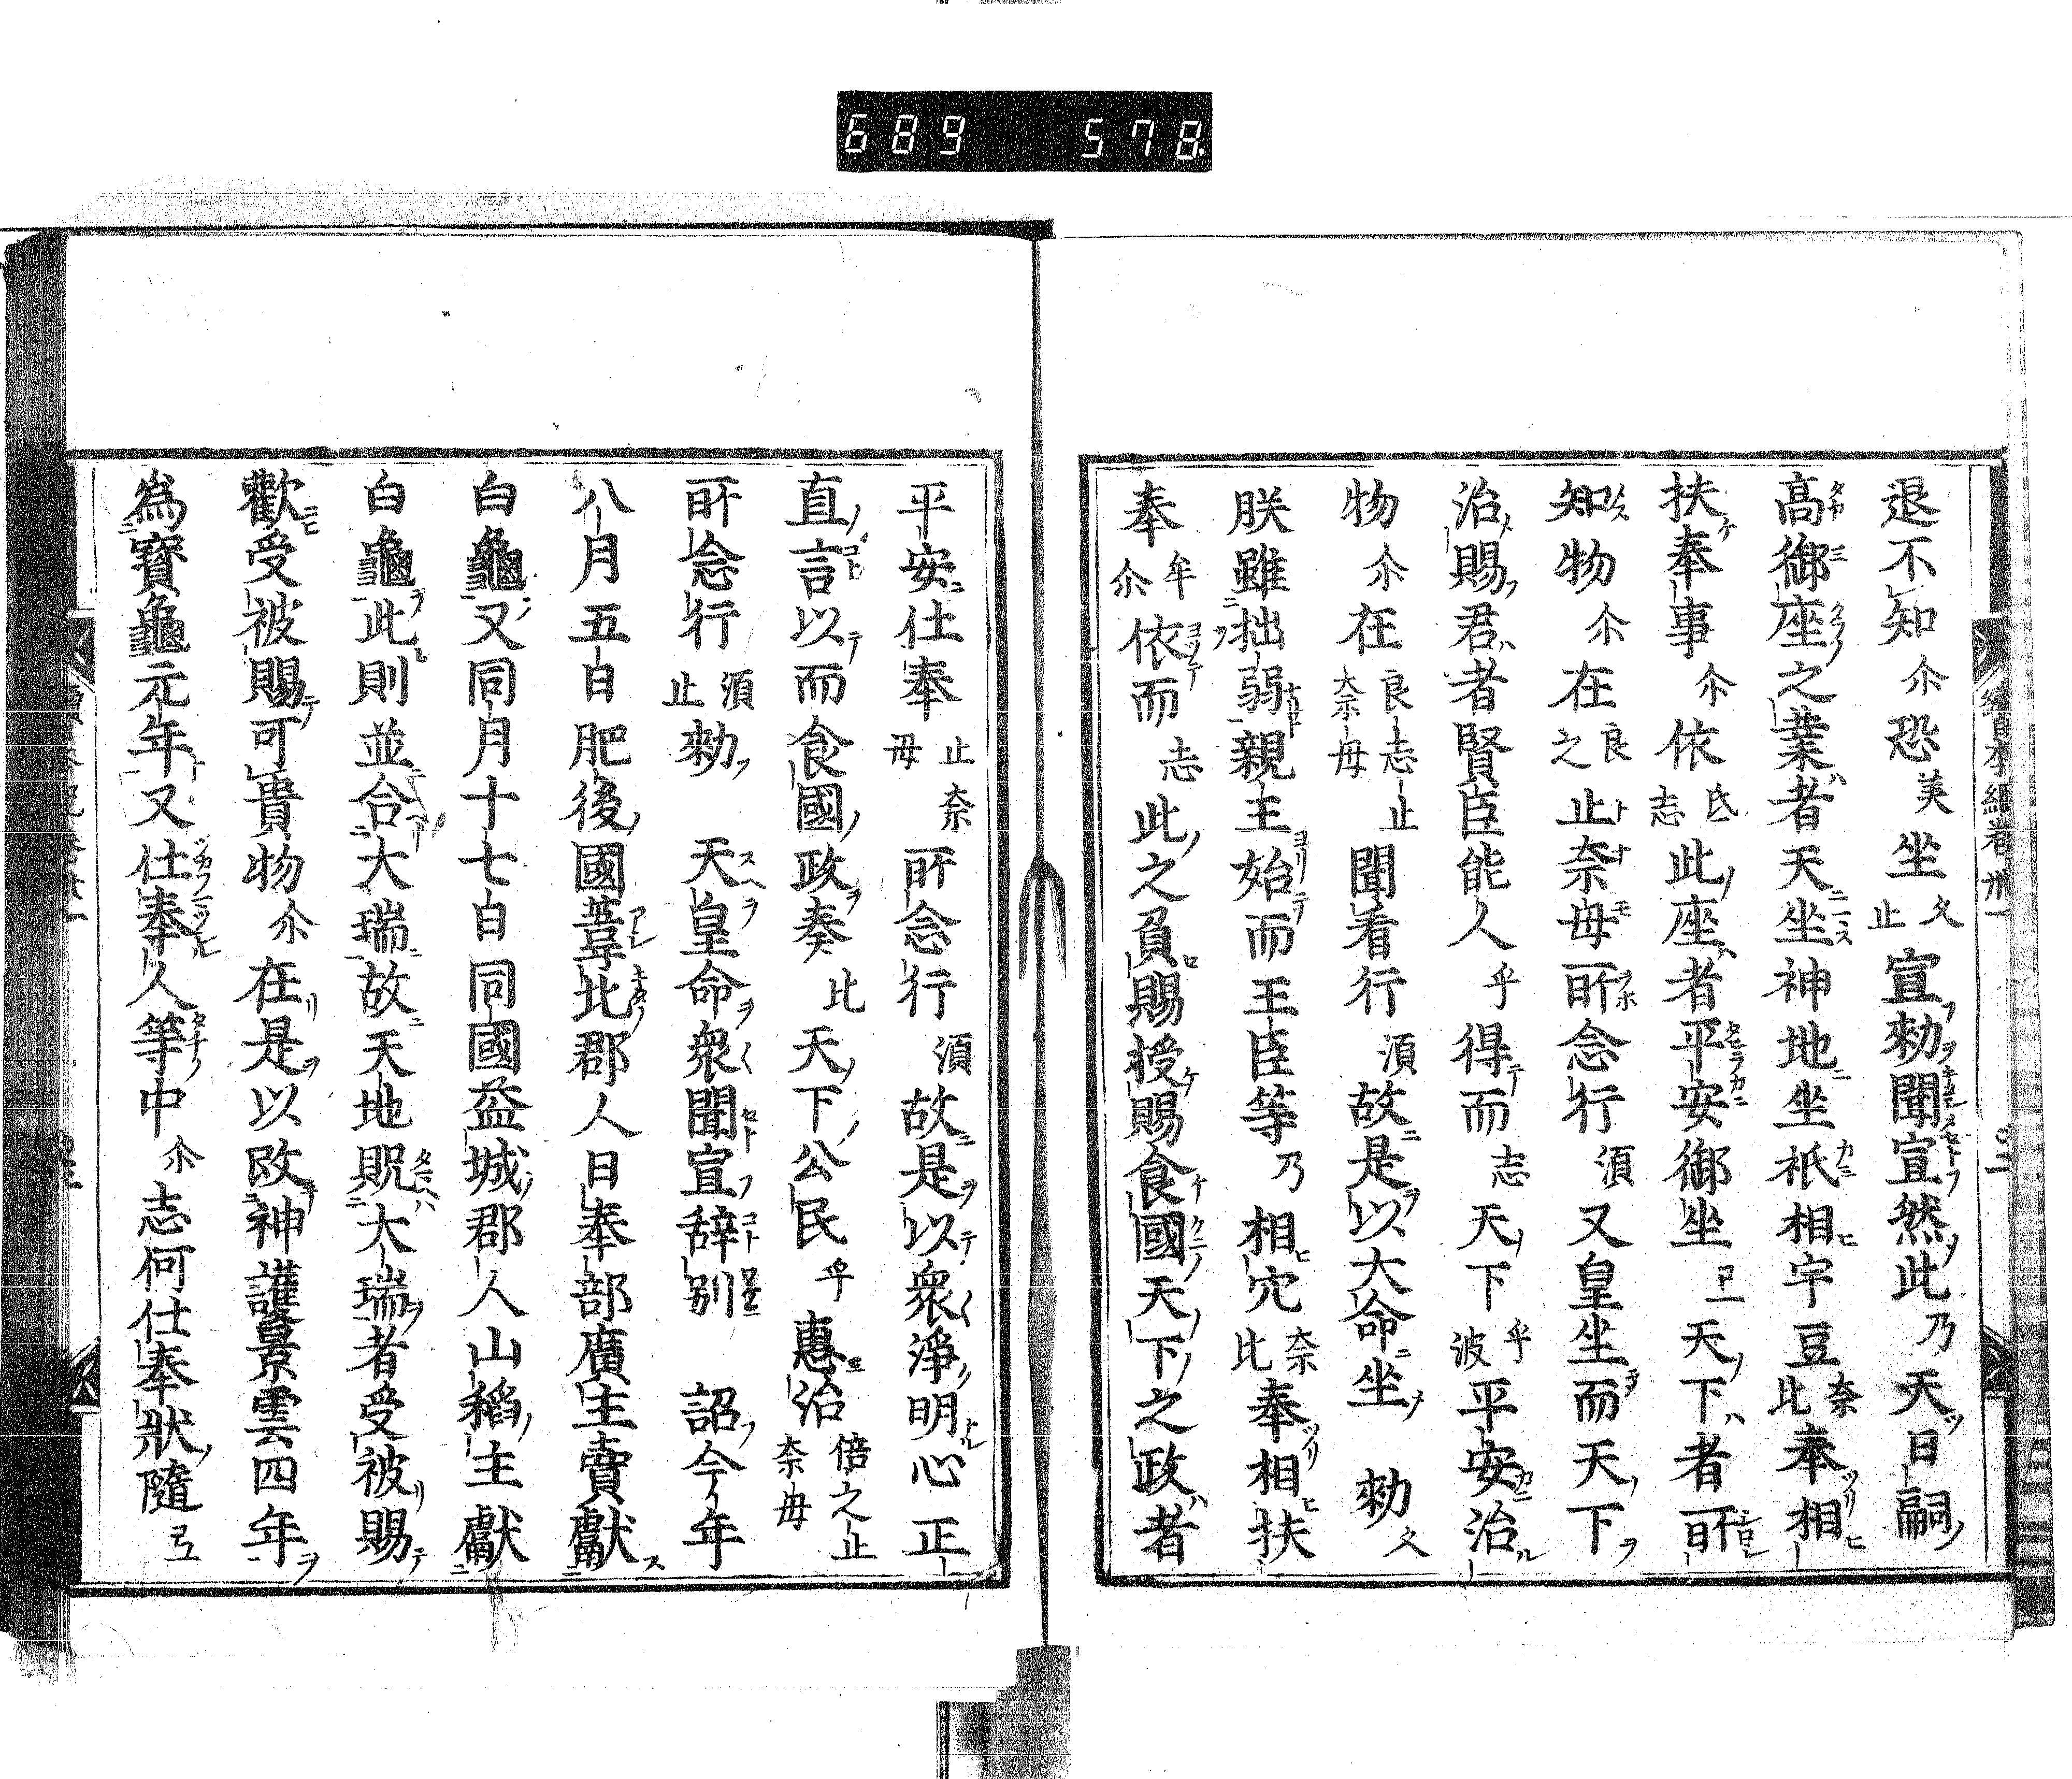 689 578
續日本紀卷卅一
退不知尒恐美坐久止宣勑聞宣然此乃天日嗣
高御座之業者天坐神地坐祇相宇豆奈比奉相
扶奉事尒依氐志此座者平安御坐天下者所
知物尒在良之止奈毋所念行須又皇坐而天下
治賜君者賢臣能人乎得而志天下乎波平安治
物尒在良志止奈毋聞看行須故是以大命坐勑久
朕雖拙弱親王始而王臣等乃相穴奈比奉相扶
奉牟尒依而志此之負賜授賜食國天下之政者
平安仕奉止奈毋所念行須故是以衆淨明心正
直言以而食國政奏比天下公民乎惠治倍之止奈毋
所念行須止勑天皇命衆聞宣辞別詔今年
八月五日肥後國葦北郡人日奉部廣主賣獻
白龜又同月十七日同國益城郡人山稻主獻
白龜此則並合大瑞故天地貺大瑞者受被賜
歡受被賜可貴物尒在是以改神護景雲四年
為寶龜元年又仕奉人等中尒志何仕奉狀隨